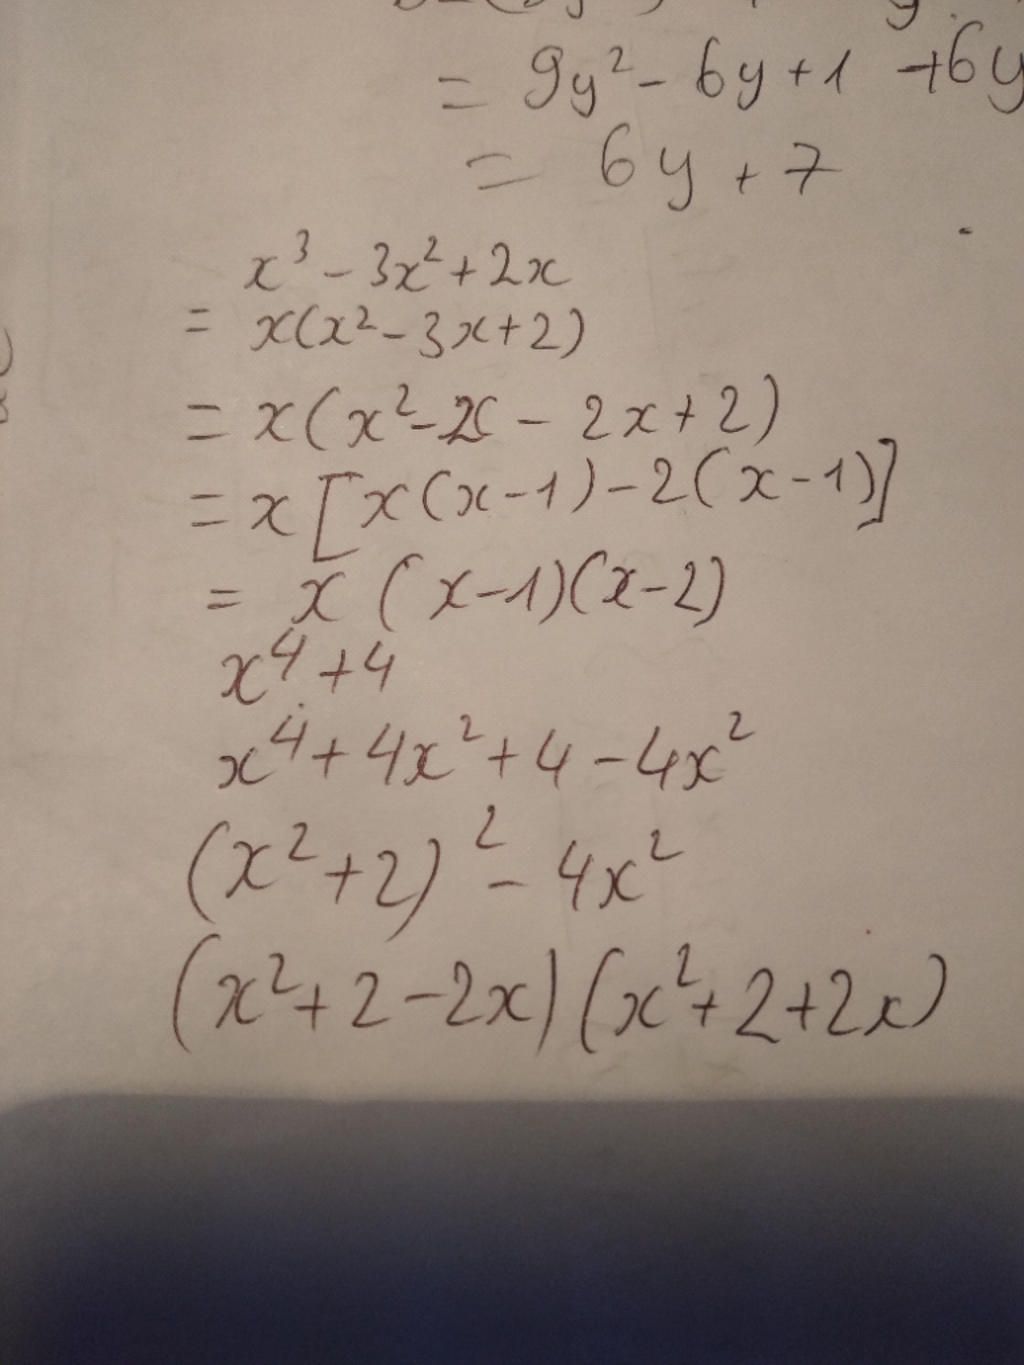 = 9y² - 6y + 1 + 6y
= 6y + 7
x³ - 3x² + 2x
= x(x² - 3x + 2)
= x(x² - x - 2x + 2)
= x[x(x-1) - 2(x-1)]
= x (x-1)(x-2)
x⁴ + 4
x⁴ + 4x² + 4 - 4x²
(x² + 2)² - 4x²
(x² + 2 - 2x)(x² + 2 + 2x)